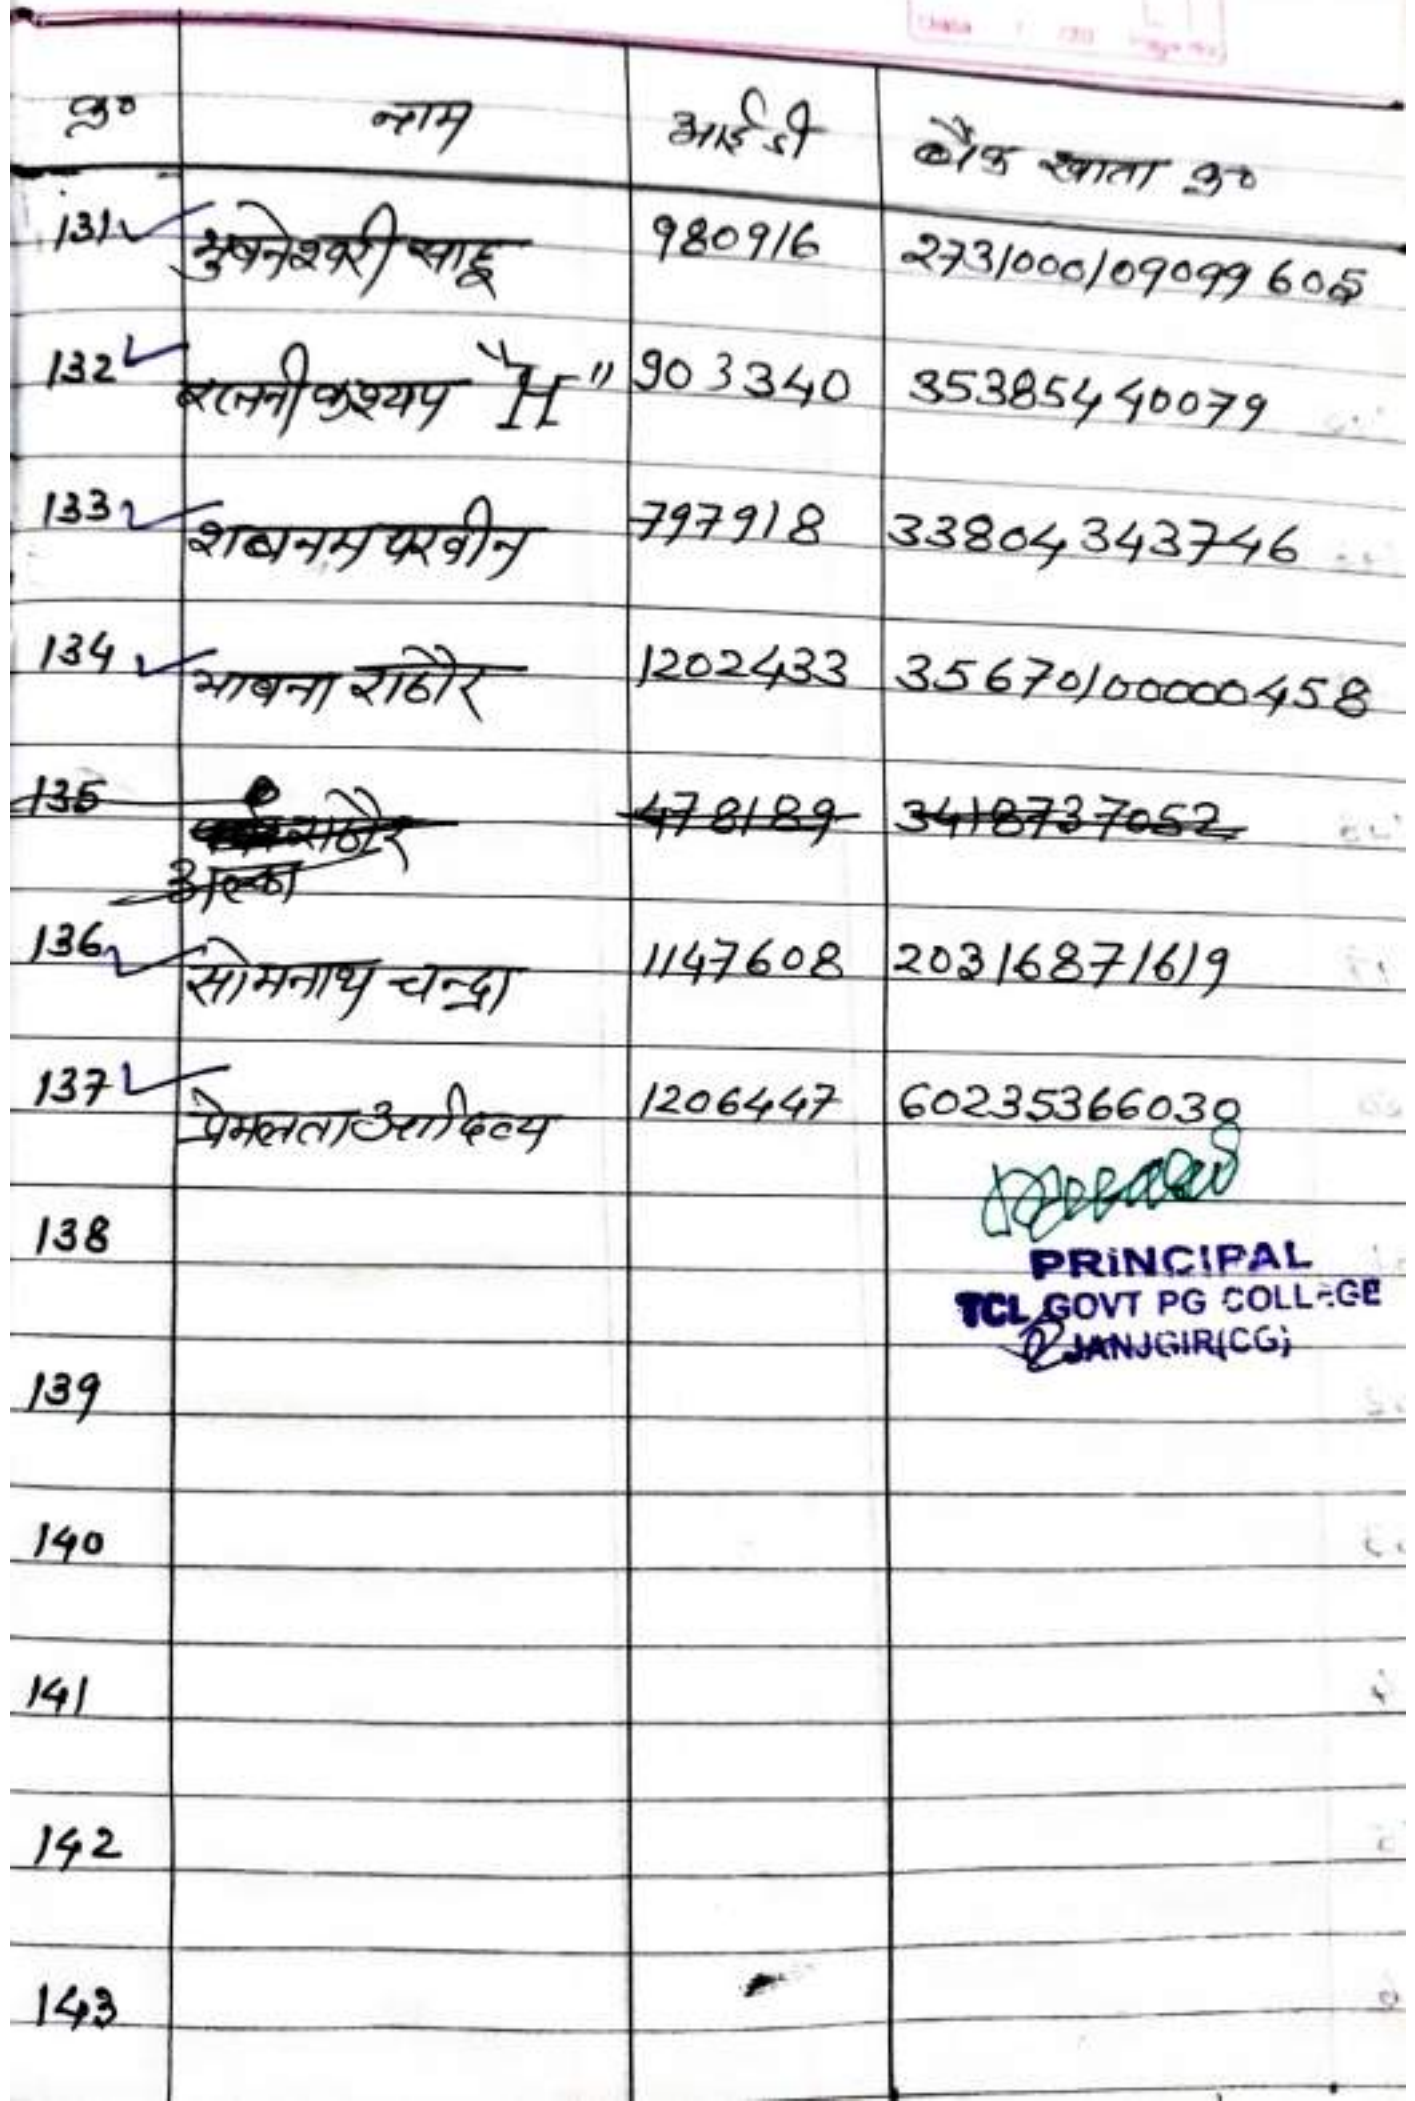 क्र० नाम आई डी बैंक खाता क्र०
131 भुवनेश्वरी साहू 980916 2731000109099605
132 रजनी कश्यप "H" 903340 35385440079
133 शबनम परवीन 797918 33804343746
134 भावना राठौर 1202433 35670100000458
135 राठौर 478189 3418737052
अल्का
136 सोमनाथ चन्द्रा 1147608 20316871619
137 प्रेमलता आदित्य 1206447 60235366038
138
PRINCIPAL
TCL GOVT PG COLLEGE
JANJGIR(CG)
139
140
141
142
143